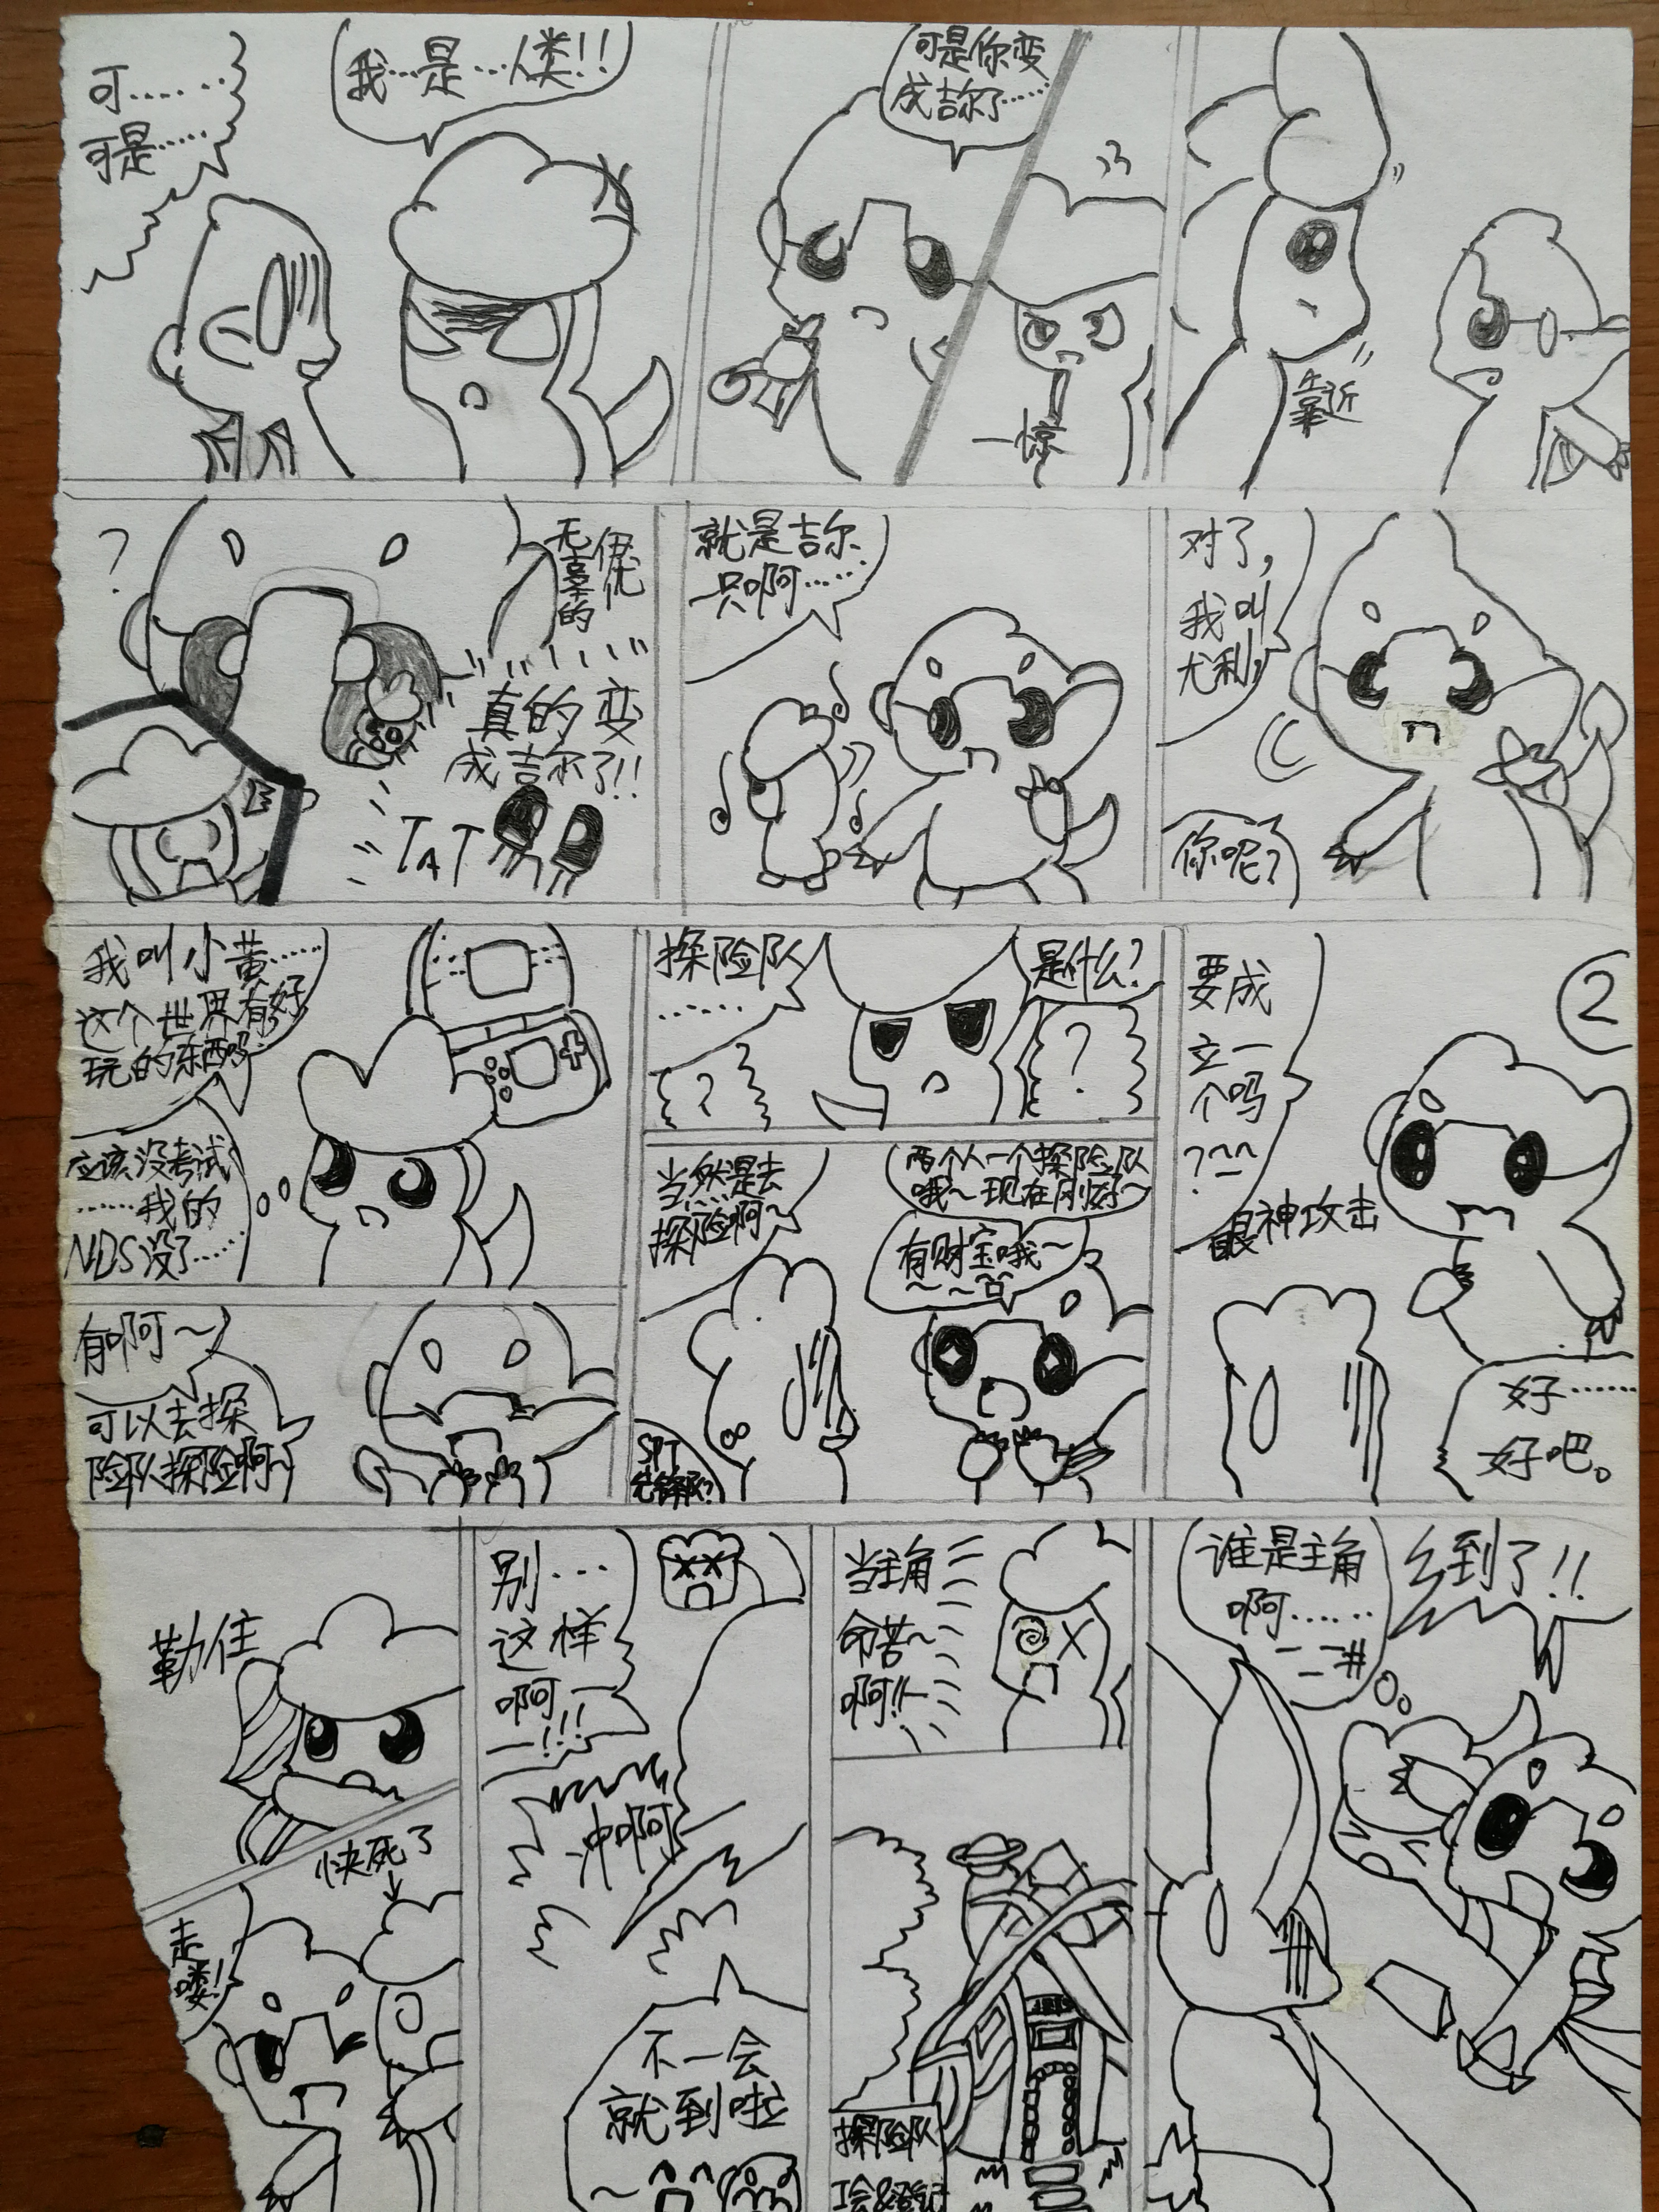 可……
可是……
我…是…人类!!
可是你变
成吉尔了……
一惊
靠近
?
无辜的
真的变
成吉尔了!!
TAT
就是吉尔
只啊……
对了,
我叫
尤利,
你呢?
我叫小黄……
这个世界有好
玩的东西吗
应该没考试
……我的
NDS没了……
有啊~
可以去探
险队探险啊~
探险队
……
是什么?
?
?
当然是去
探险啊~
两个人一个探险队
哦~现在刚好~
有财宝哦~
~~
SPT
先锋队?
②
要成
立一
个吗
?^^
眼神攻击
好……
好吧。
勒住
快死了
走
喽!
别…
这样
啊—
—!!!
冲啊
不一会
就到啦
~
当主角
命苦~
啊!!
探险队
工会&登记
谁是主角
啊……
到了!!